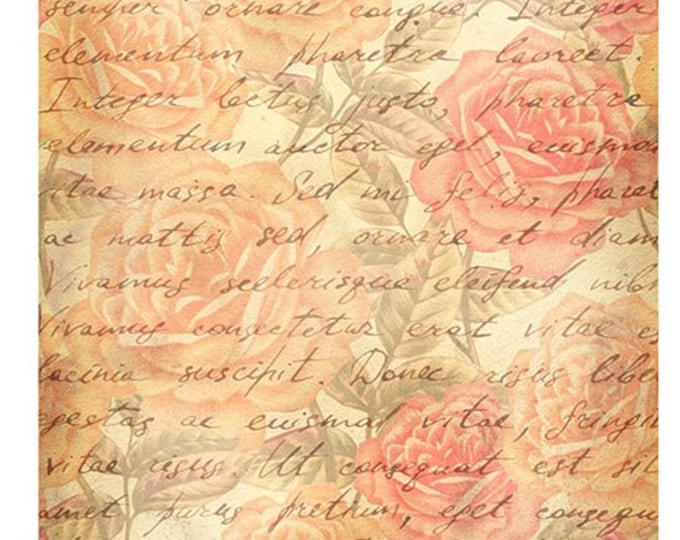 semper ornare congue. Integer
elementum pharetra laoreet.
Integer lectus justo, pharetra
elementum auctor eget, euismod
vitae massa. Sed mi felis, pharet
ac mattis sed, ornare et diam
Vivamus scelerisque eleifend nibh
Vivamus consectetur erat vitae es
lacinia suscipit. Donec risus libe
egestas ac euismod vitae, fringil
vitae risus. Ut consequat est sit
amet purus pretium, eget consequ